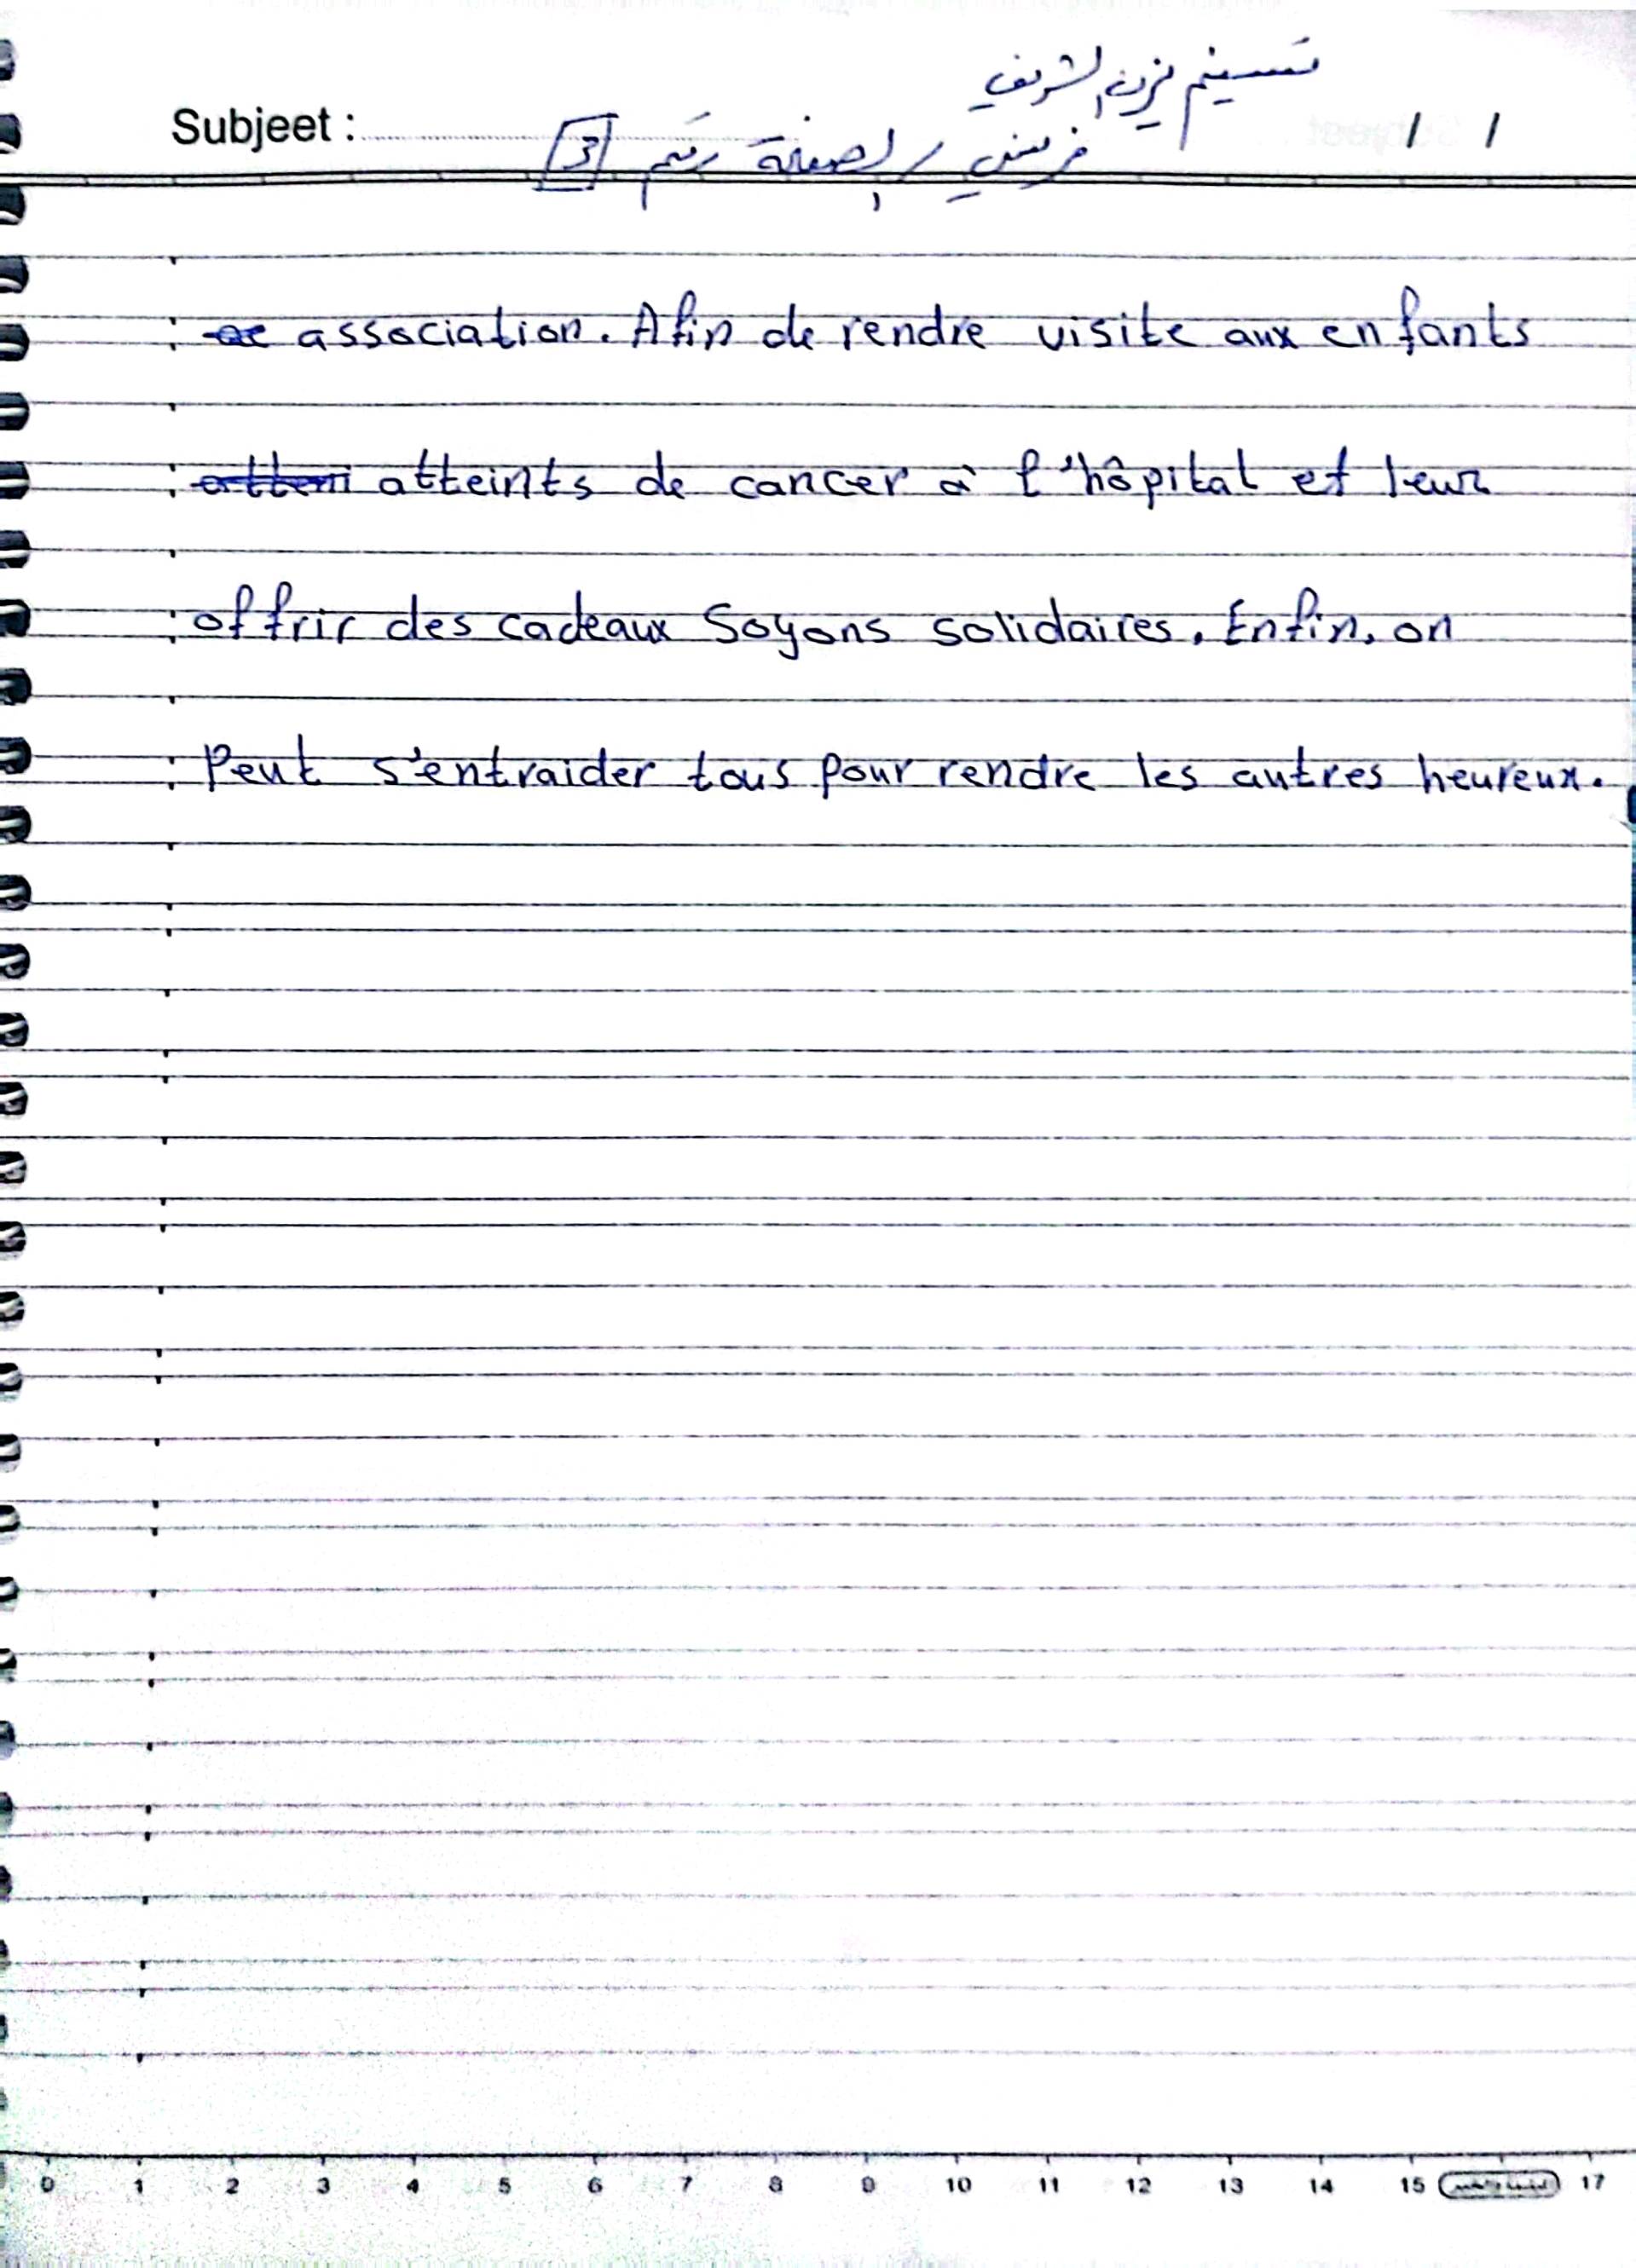 تسنيم يزن الشريف
Subjeet : / /
فرنسي / الصفحة رقم 3
association. Afin de rendre visite aux enfants
atteints de cancer à l'hôpital et leur
offrir des cadeaux Soyons solidaires. Enfin, on
Peut s'entraider tous pour rendre les autres heureux.
0 1 2 3 4 5 6 7 8 9 10 11 12 13 14 15 17